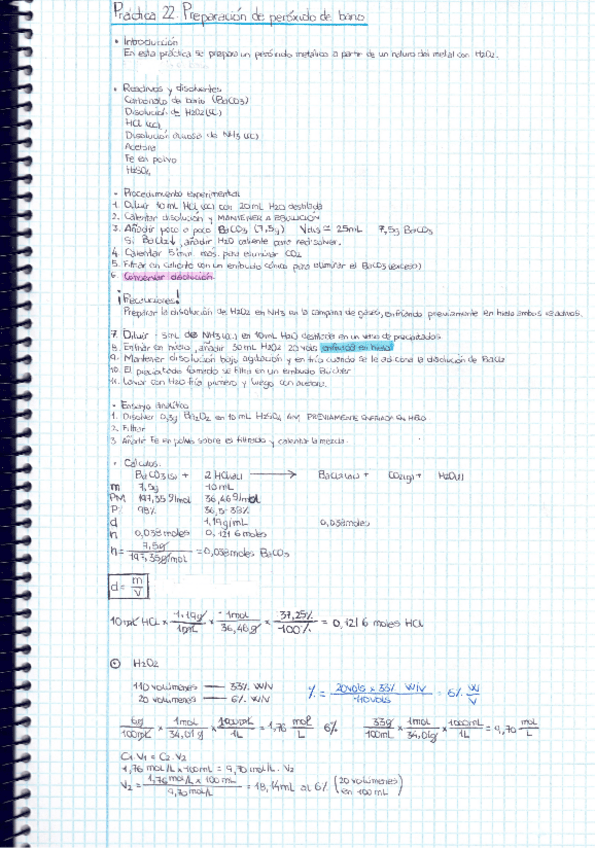 Práctica 22. Preparación de peróxido de bario
• Introducción
En esta práctica se prepara un peróxido metálico a partir de un haluro del metal con H2O2.
• Reactivos y disolventes
Carbonato de bario (BaCO3)
Disolución de H2O2 (ac)
HCl (cc)
Disolución acuosa de NH3 (cc)
Acetona
Fe en polvo
H2SO4
• Procedimiento experimental
1. Diluir 10 mL HCl (cc) con 20 mL H2O destilada
2. Calentar disolución y MANTENER A EBULLICIÓN
3. Añadir poco a poco BaCO3 (7,5g) 25mL 7,5g BaCO3
Si BaCl2↓, añadir H2O caliente para redisolver.
4. Calentar 5 min. más. para eliminar CO2
5. Filtrar en caliente con un embudo cónico para eliminar el BaCO3 (exceso)
6. Concentrar disolución.
¡Precauciones!
Preparar la disolución de H2O2 en NH3 en la campana de gases, enfriando previamente en hielo ambos reactivos.
7. Diluir 5mL de NH3 (cc) en 10mL H2O destilada en un vaso de precipitados
8. Enfriar en hielo, añadir 30mL H2O2 20 vols enfriada en hielo
9. Mantener disolución bajo agitación y en frío cuando se le adiciona la disolución de BaCl2
10. El precipitado formado se filtra en un embudo Büchner
11. Lavar con H2O fría primero y luego con acetona.
• Ensayo analítico
1. Disolver 0,3g BaO2 en 10 mL H2SO4 4M, PREVIAMENTE ENFRIADA EN HIELO
2. Filtrar
3. Añadir Fe en polvo sobre el filtrado y calentar la mezcla.
• Cálculos.
BaCO3(s) + 2 HCl(ac) ⟶ BaCl2(ac) + CO2(g) + H2O(l)
m 7,5g 10mL
PM 197,35g/mol 36,46g/mol
P 98% 36,5-38%
d 1,19g/mL 0,038moles
n 0,038moles 0,1216moles
n = 7,5g / 197,35g/mol = 0,038moles BaCO3
d = m/V
10 mL HCl × 1,19g/1mL × 1mol/36,46g × 37,25%/100% = 0,1216 moles HCl
H2O2
110 volúmenes — 33% W/V % = 20vols × 33% W/V / 110vols = 6% W/V
20 volúmenes — 6% W/V
6g/100mL × 1mol/34,01g × 1000mL/1L = 1,76 mol/L 6% 33g/100mL × 1mol/34,01g × 1000mL/1L = 9,70 mol/L
C1 V1 = C2 V2
1,76 mol/L × 100mL = 9,70mol/L · V2
V2 = 1,76mol/L × 100mL / 9,70mol/L = 18,14mL al 6% (20 volúmenes en 100mL)